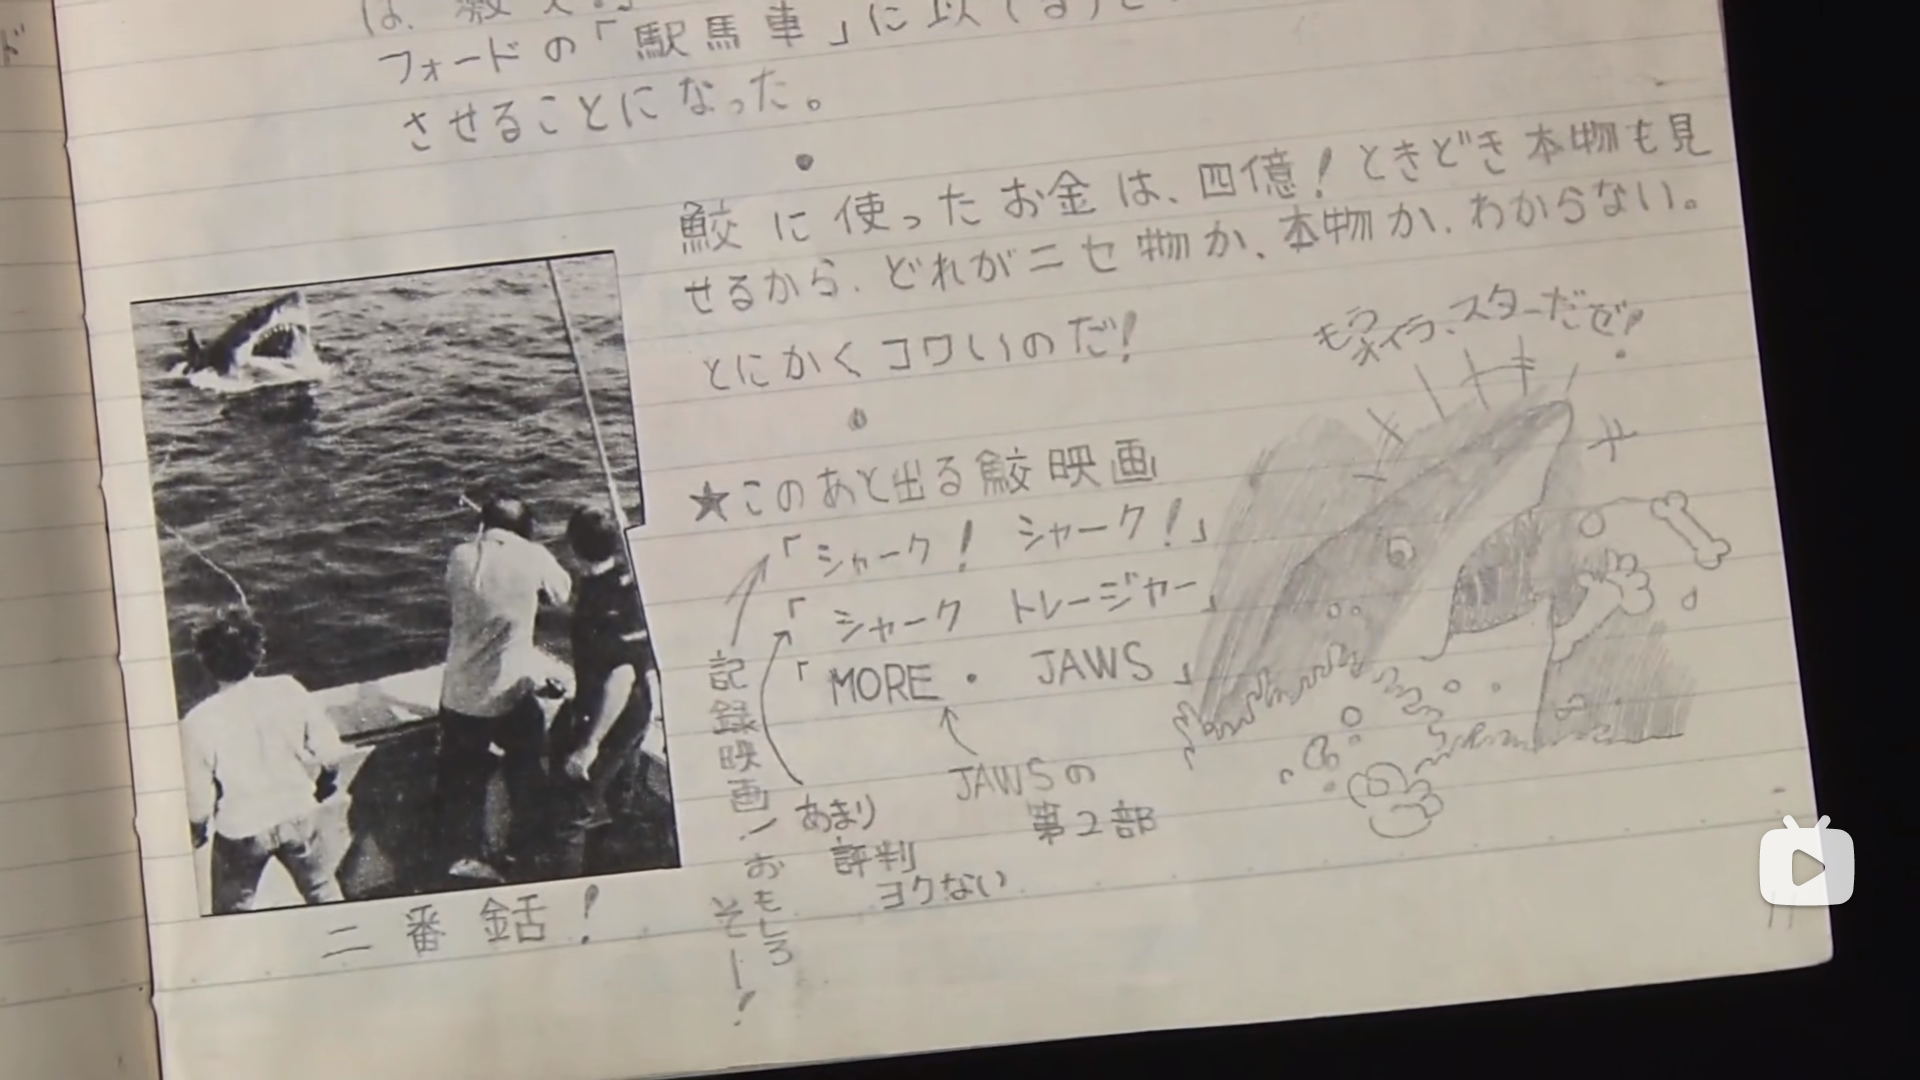 フォードの「駅馬車」に以
させることになった。
鮫に使ったお金は、四億！ときどき本物も見
せるから、どれがニセ物か、本物か、わからない。
とにかくコワいのだ！
もうオイラ、スターだぜ！
★このあと出る鮫映画
「シャーク！シャーク！」
「シャークトレージャー」
「MORE・JAWS」
記録映画！おもしろそー！
あまり
評判
ヨクない
JAWSの
第2部
二番銛！